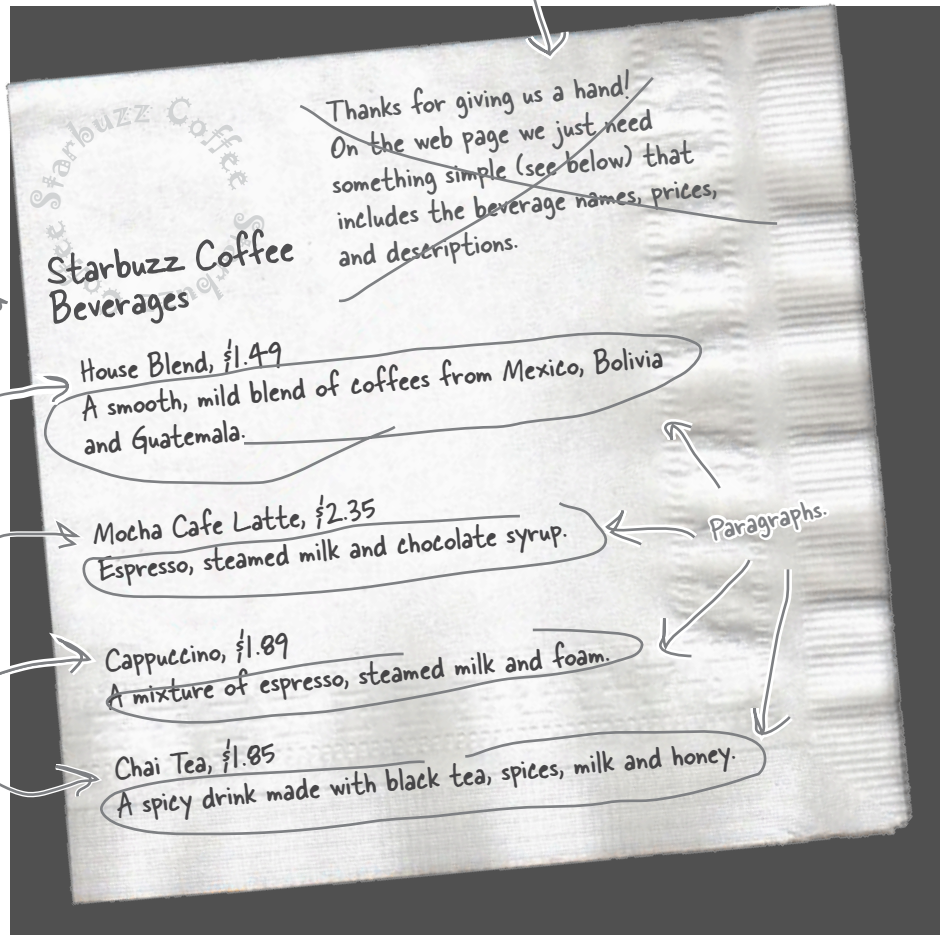 Starbuzz Coffee
Thanks for giving us a hand!
On the web page we just need
something simple (see below) that
includes the beverage names, prices,
and descriptions.
Starbuzz Coffee
Beverages
House Blend, $1.49
A smooth, mild blend of coffees from Mexico, Bolivia
and Guatemala.
Mocha Cafe Latte, $2.35
Espresso, steamed milk and chocolate syrup.
Paragraphs.
Cappuccino, $1.89
A mixture of espresso, steamed milk and foam.
Chai Tea, $1.85
A spicy drink made with black tea, spices, milk and honey.